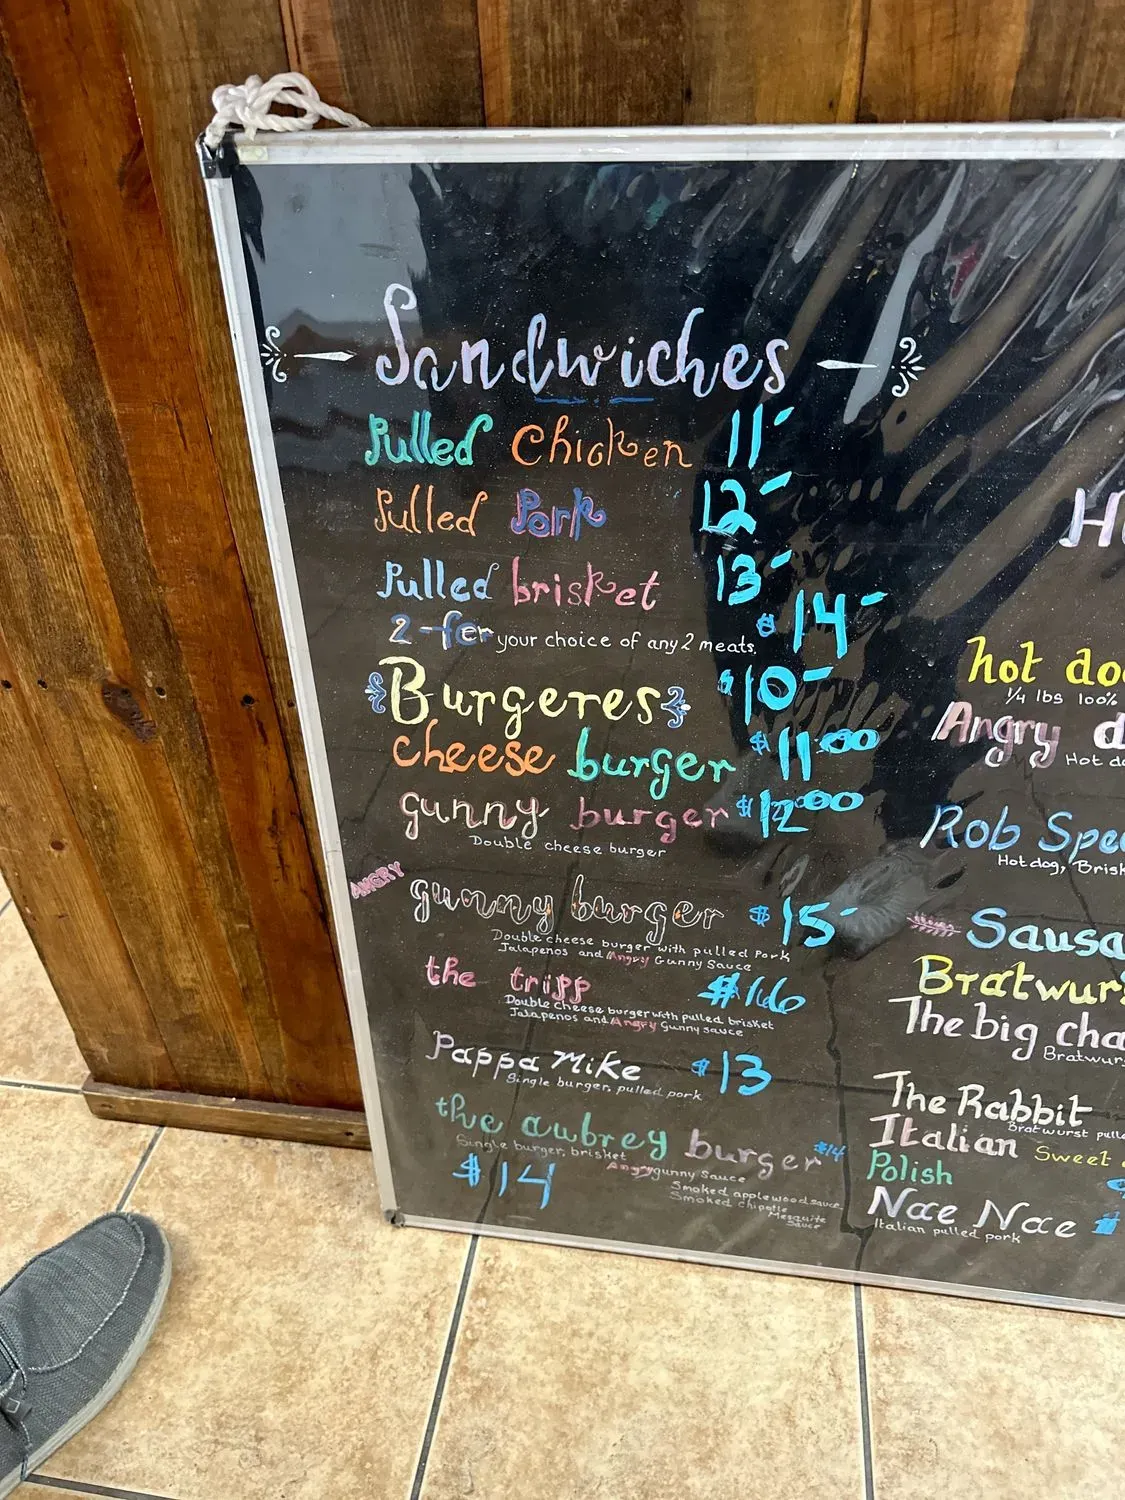 Sandwiches
Pulled Chicken 11-
Pulled Pork 12-
Pulled brisket 13-
2-fer your choice of any 2 meats. $14-
Burgeres $10-
cheese burger $11.00
gunny burger $12.00
Double cheese burger
ANGRY
gunny burger $15-
Double cheese burger with pulled Pork
Jalapenos and Angry Gunny Sauce
the tripp $16
Double cheese burger with pulled brisket
Jalapenos and Angry Gunny sauce
Pappa Mike $13
Single burger, pulled pork
the aubrey burger $14
Single burger, brisket
Angry gunny Sauce
$14
Smoked applewood sauce
Smoked chipotle
Mesquite
Sauce
H
hot do
1/4 lbs 100%
Angry d
Hot do
Rob Spec
Hotdog, Brisk
Sausa
Bratwurs
The big cha
Bratwurs
The Rabbit
Bratwurst pulle
Italian Sweet
Polish $
Nae Nae
Italian pulled pork